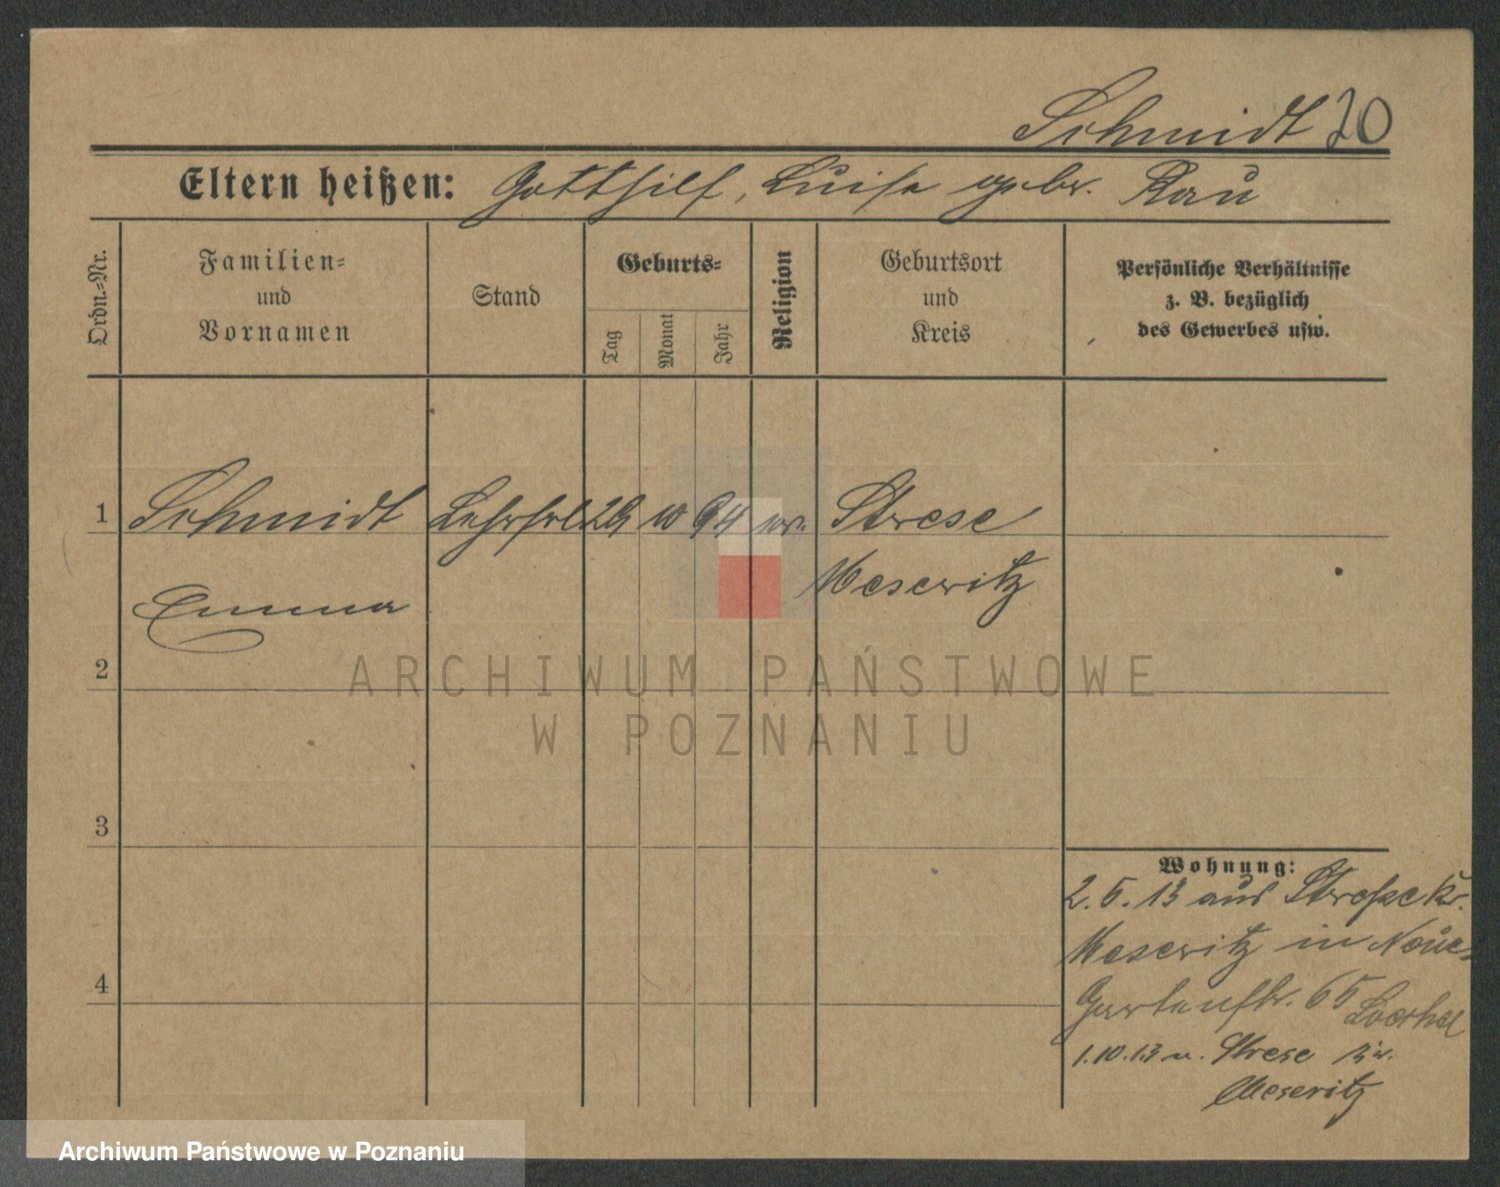 Schmidt 20
Eltern heißen: Gotthilf, Luise geb. Rau
Ordn.-Nr.
Familien-
und
Vornamen
Stand
Geburts-
Tag
Monat
Jahr
Religion
Geburtsort
und
Kreis
Persönliche Verhältnisse
z. B. bezüglich
des Gewerbes usw.
1 Schmidt Lehrfrl. 29 10 94 ev. Strese
Meseritz
Emma
2
ARCHIWUM PAŃSTWOWE
W POZNANIU
3
4
Wohnung:
2. 5. 13 aus Strese Kr.
Meseritz in Neue-
Gartenstr. 65
1.10.13 n. Strese Kr.
Meseritz
Archiwum Państwowe w Poznaniu